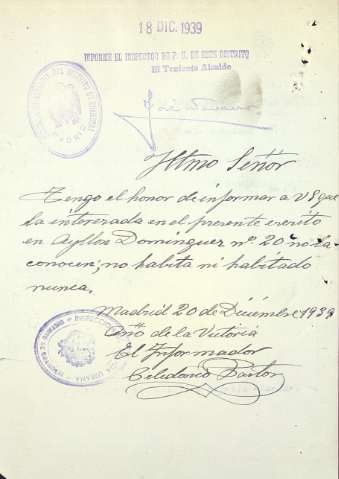 18 DIC. 1939
INFORME EL INSPECTOR DE P. U. DE ESTE DISTRITO
El Teniente Alcalde
Iltmo Señor
Tengo el honor de informar a VS que
la interezada en el presente escrito
en Ayllon Dominguez nº 20 no la
conocen; no habita ni habitado
nunca.
Madrid 20 de Diciembre 1939
Año de la Victoria
El Informador
Celedonio Pastor